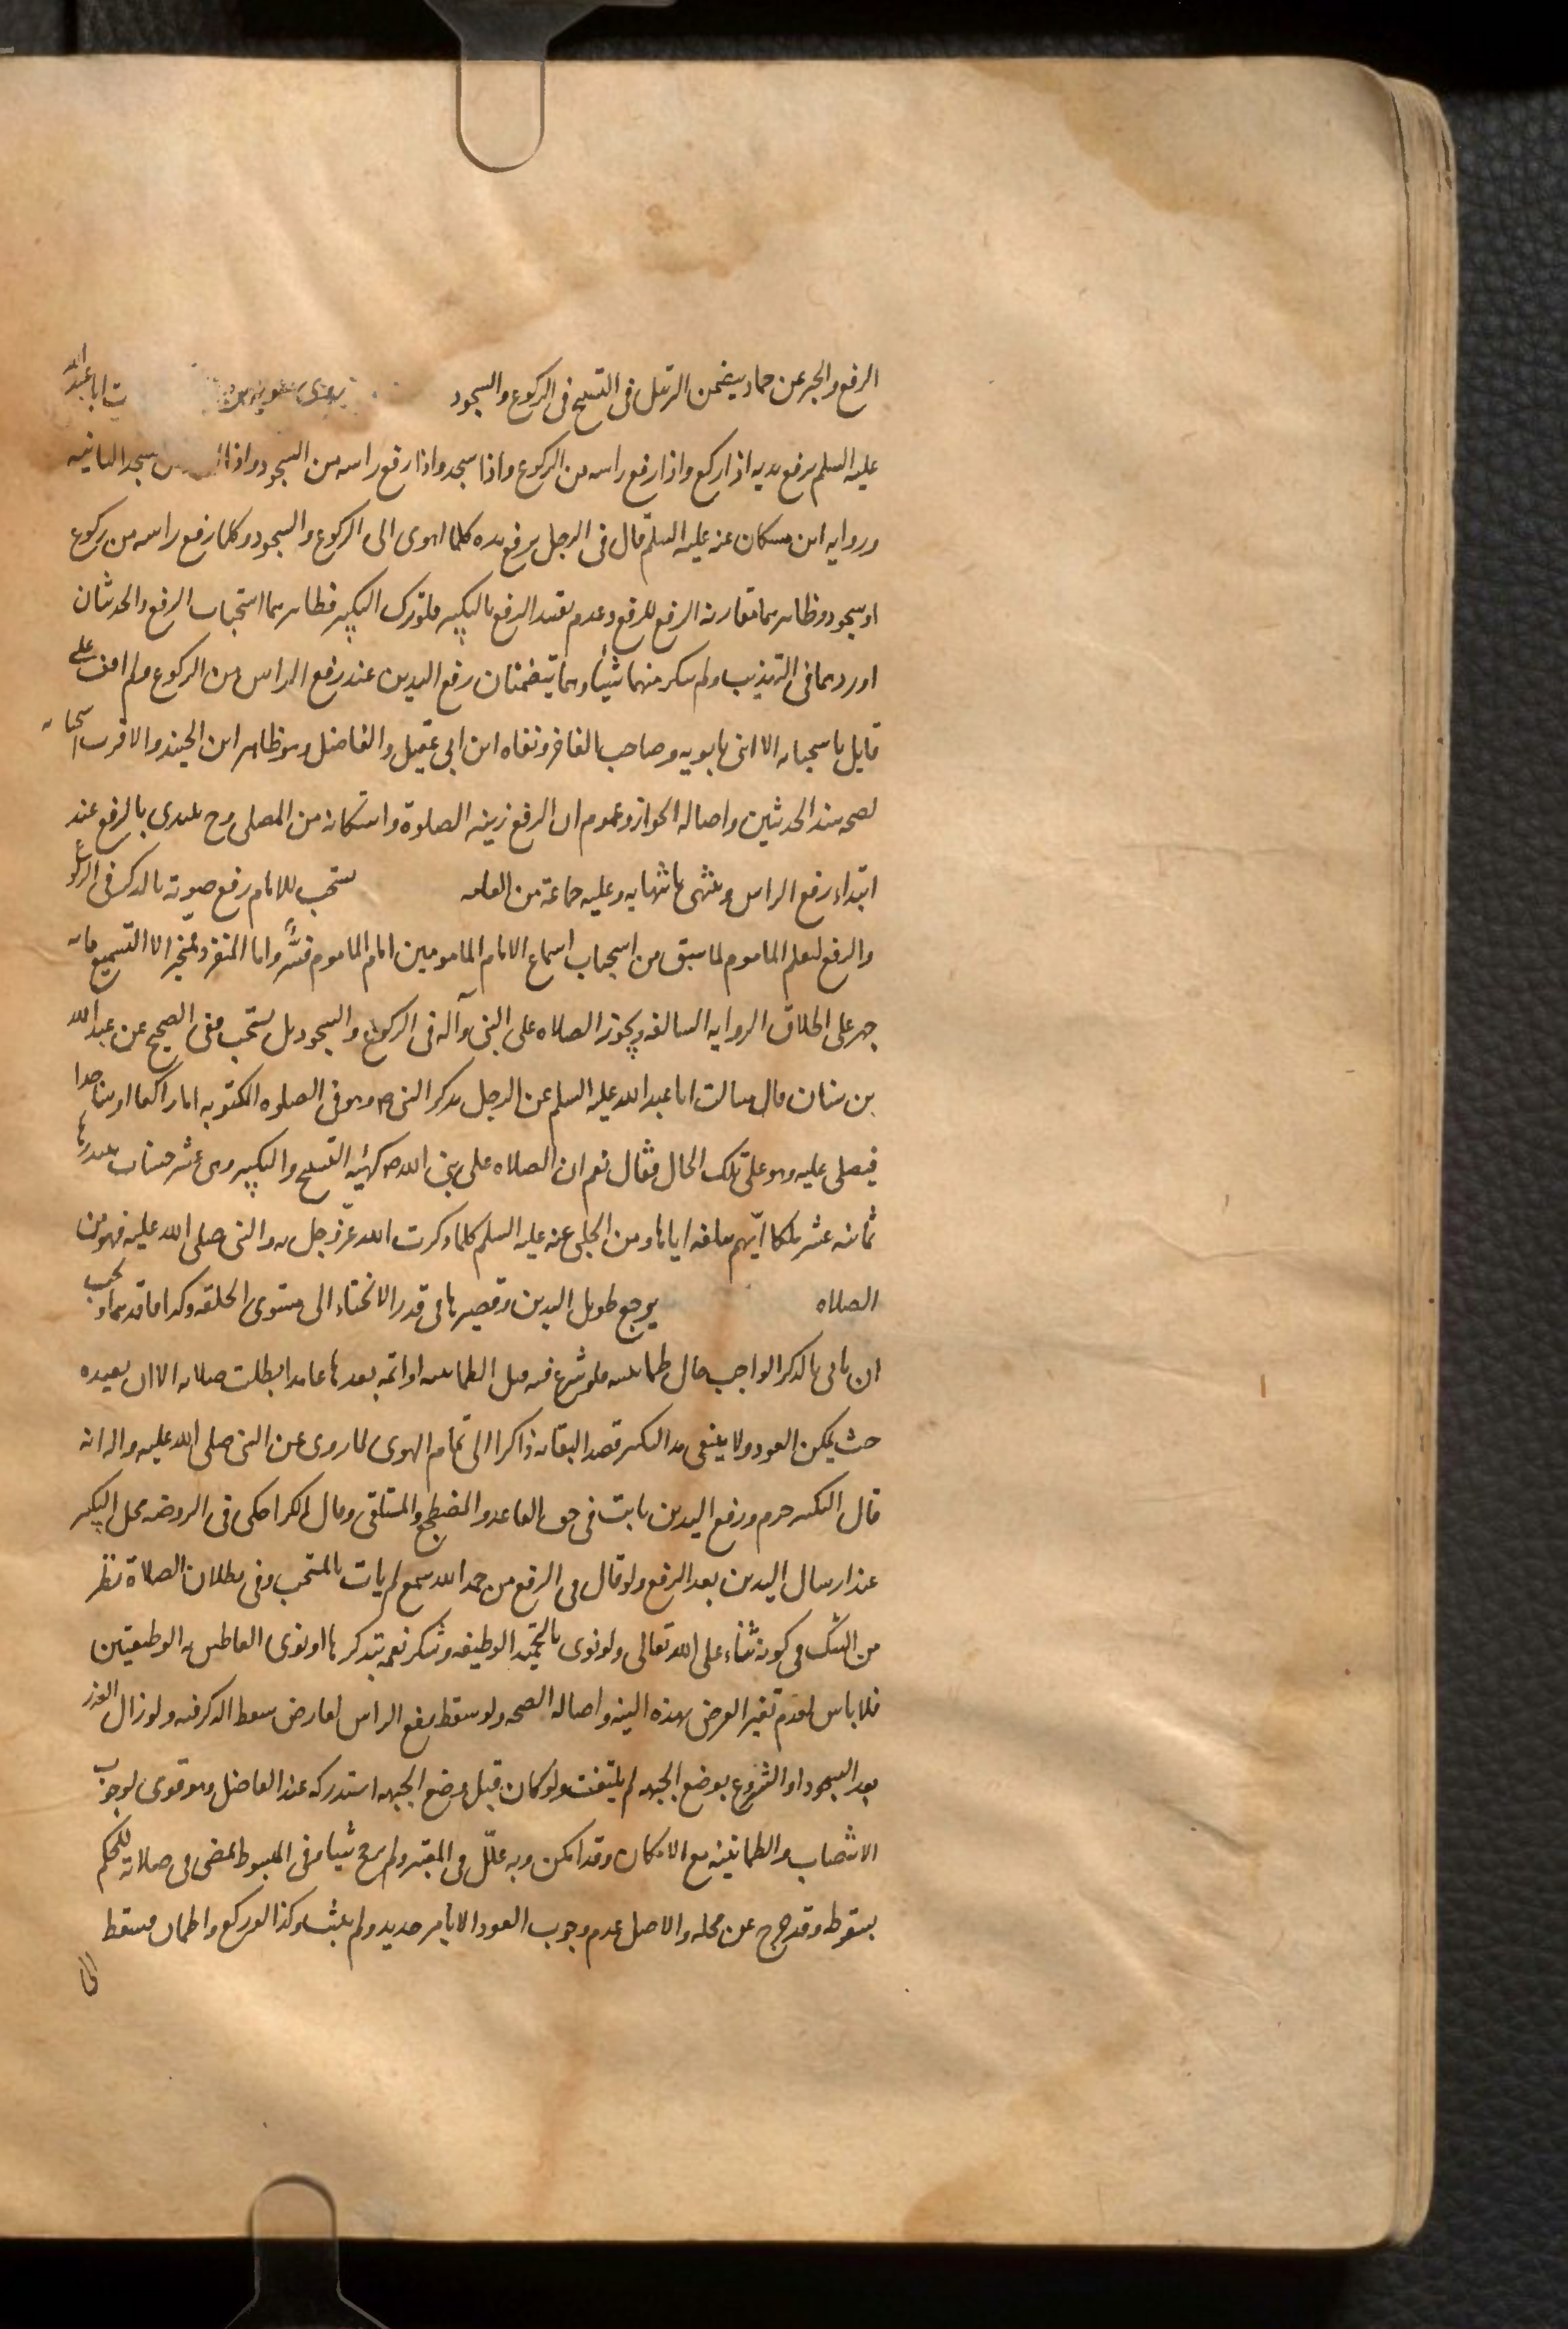 الرفع والخبر عن حماد يتضمن الترتيل فى التسبيح فى الركوع والسجود روى معويه بن ت ابا عبد الله
عليه السلم يرفع يديه اذا ركع واذا رفع راسه من الركوع واذا سجد واذا رفع راسه من السجود واذا سجد الثانيه
وروايه ابن مسكان عنه عليه السلم قال فى الرجل يرفع يده كلما اهوى الى الركوع والسجود وكلما رفع راسه من ركوع
او سجود وظاهرهما مقارنه الرفع للرفع وعدم تقييد الرفع بالتكبير فلو ترك التكبير فظاهرهما استحباب الرفع والحديثان
اوردهما فى التهذيب ولم ينكر منهما شيئا وهما يتضمنان رفع اليدين عند رفع الراس من الركوع ولم اقف على
قايل باستحبابه الا ابنى بابويه وصاحب الفاخر ونفاه ابن ابى عقيل والفاضل وهو ظاهر ابن الجنيد والاقرب استحبابه
لصحه سند الحديثين واصاله الجواز وعموم ان الرفع زينه الصلوة واستكانه من المصلى وح يبتدى بالرفع عند
ابتداء رفع الراس وينتهى بانتهايه وعليه جماعة من العامه يستحب للامام رفع صوته بالذكر فى الركوع
والرفع ليعلم الماموم لما سبق من استحباب اسماع الامام المامومين اما الماموم فيسر واما المنفرد فمخير الا التسميع فانه
جهر على اطلاق الروايه السالفه ويجوز الصلاه على النبى وآله فى الركوع والسجود بل يستحب ففى الصحيح عن عبد الله
بن سنان قال سالت ابا عبد الله عليه السلم عن الرجل يذكر النبى ص وهو فى الصلوه المكتوبه اما راكعا او ساجدا
فيصلى عليه وهو على تلك الحال فقال نعم ان الصلاه على نبى الله ص كهيئه التسبيح والتكبير وهى عشر حسنات يبتدرها
ثمانيه عشر ملكا ايهم يبلغه اياها ومن الحلبى عنه عليه السلم كلما ذكرت الله عز وجل به والنبى صلى الله عليه فهو من
الصلاه يرجع طويل اليدين وقصيرها فى قدر الانحناء الى مستوى الخلقه وكذا فاقدهما ويجب
ان ياتى بالذكر الواجب حال طمانينته فلو شرع فيه قبل الطمانينه او اتمه بعدها عامدا بطلت صلاته الا ان يعيده
حيث يمكن العود ولا ينبغى مد التكبير قصدا لبقائه ذاكرا الى تمام الهوى لما روى عن النبى صلى الله عليه واله انه
قال التكبير جزم ورفع اليدين ثابت فى حق القاعد والمضطجع والمستلقى وقال الكراجكى فى الروضه محل التكبير
عند ارسال اليدين بعد الرفع ولو قال فى الرفع من حمد الله سمع لم يات بالمستحب وفى بطلان الصلاة نظر
من الشك فى كونه ثناء على الله تعالى ولو نوى بالتحميد الوظيفه وشكر نعمه يتذكرها او نوى العاطس به الوظيفتين
فلا باس لعدم تغير الغرض بهذه النيه واصاله الصحه ولو سقط رفع الراس لعارض سقط الذكر فيه ولو زال العذر
بعد السجود او الشروع بوضع الجبهه لم يلتفت ولو كان قبل وضع الجبهه استدركه عند الفاضل وهو قوى لوجوب
الانتصاب والطمانينه مع الامكان وقد امكن وبه علل فى المعتبر ولم يرجح شيئا وفى المبسوط يمضى فى صلاته للحكم
بسقوطه وقد خرج عن محله والاصل عدم وجوب العود الا بامر جديد ولم يثبت وكذا لو ركع واطمان فسقط